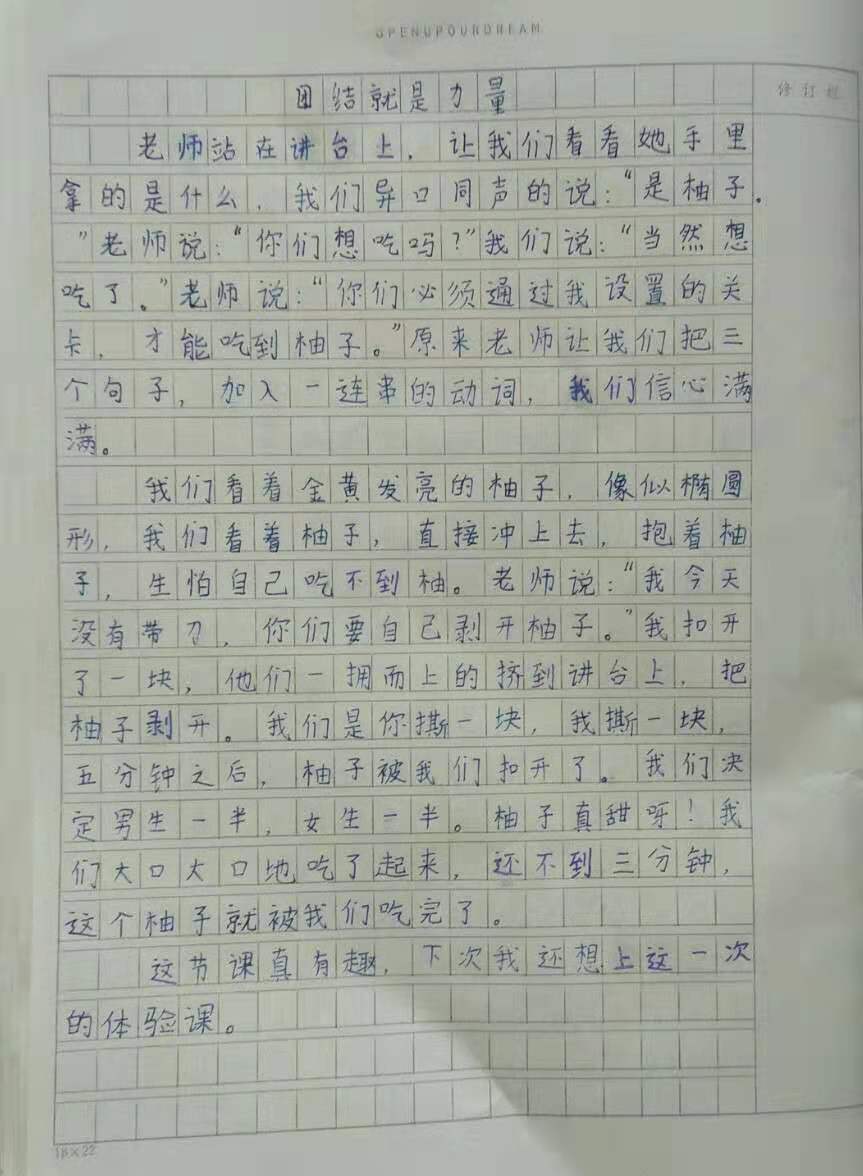 OPENUPOURDREAM
修订栏
团结就是力量
老师站在讲台上，让我们看看她手里
拿的是什么，我们异口同声的说：“是柚子。
”老师说：“你们想吃吗？”我们说：“当然想
吃了。”老师说：“你们必须通过我设置的关
卡，才能吃到柚子。”原来老师让我们把三
个句子，加入一连串的动词，我们信心满
满。
我们看着金黄发亮的柚子，像似椭圆
形，我们看着柚子，直接冲上去，抱着柚
子，生怕自己吃不到柚。老师说：“我今天
没有带刀，你们要自己剥开柚子。”我扣开
了一块，他们一拥而上的挤到讲台上，把
柚子剥开。我们是你撕一块，我撕一块，
五分钟之后，柚子被我们扣开了。我们决
定男生一半，女生一半。柚子真甜呀！我
们大口大口地吃了起来，还不到三分钟，
这个柚子就被我们吃完了。
这节课真有趣，下次我还想上这一次
的体验课。
18×22